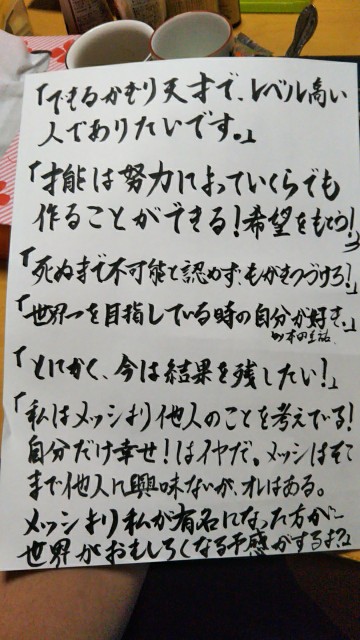 「できるかぎり天才で、レベル高い
人でありたいです。」
「才能は努力によっていくらでも
作ることができる！希望をもとう！」
「死ぬまで不可能と認めず、もがきつづけろ！」
「世界一を目指している時の自分が好き。」
by 本田圭祐
「とにかく、今は結果を残したい！」
「私はメッシより他人のことを考えている！
自分だけ幸せ！はイヤだ。メッシはそこ
まで他人に興味ないが、オレはある。
メッシより私が有名になった方が
世界がおもしろくなる予感がするよ？」